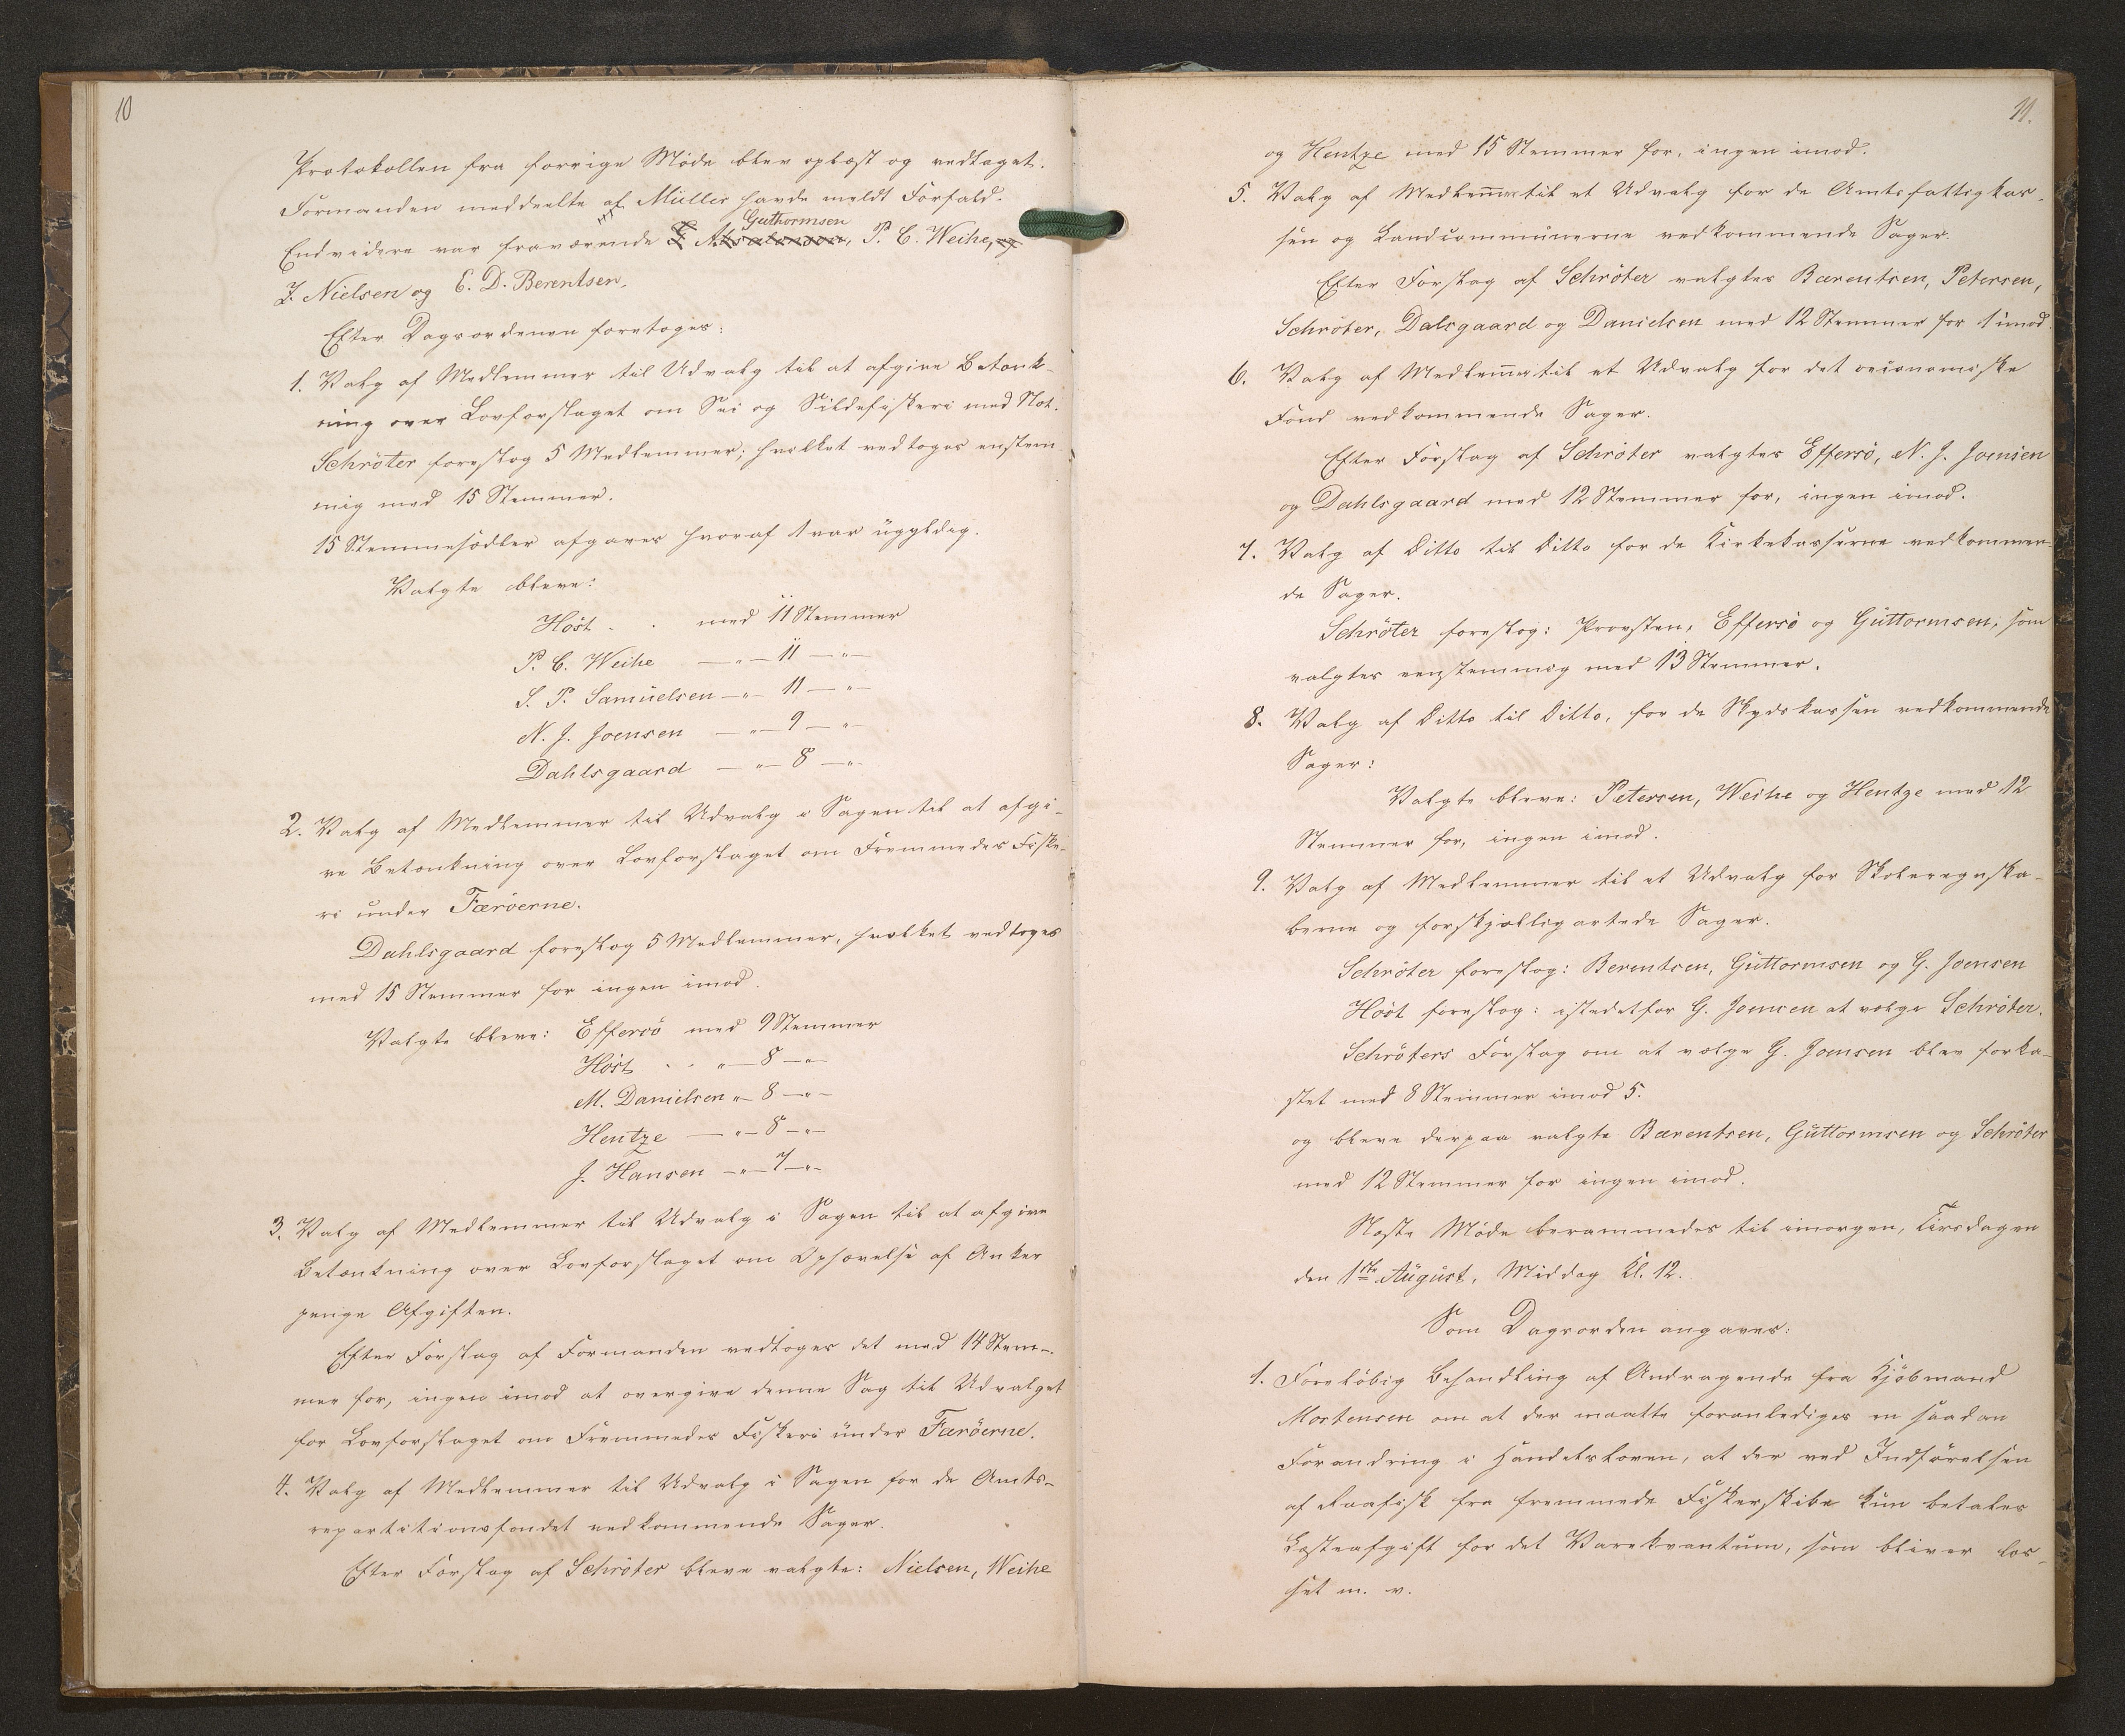 10
Protokollen fra forrige Møde blev oplæst og vedtaget.
Formanden meddeelte at Müller havde meldt Forfald.
Guthormsen
Endvidere var fraværende P. C. Weihe, og
J. Nielsen og E. D. Berentsen.
Efter Dagsordenen foretoges:
1. Valg af Medlemmer til Udvalg til at afgive Betænk-
ning over Lovforslaget om Sei og Sildefiskeri med Not.
Schröter foreslog 5 Medlemmer; hvilket vedtoges enstem
mig med 15 Stemmer.
15 Stemmesedler afgaves hvoraf 1 var ugyldig.
Valgte bleve:
Höst . . med 11 Stemmer
P. C. Weihe —"— 11 —"—
S. P. Samuelsen —"— 11 —"—
N. J. Joensen —"— 9 —"—
Dahlsgaard —"— 8 —"—
2. Valg af Medlemmer til Udvalg i Sagen til at afgi-
ve Betænkning over Lovforslaget om Fremmedes Fiske-
ri under Færöerne.
Dahlsgaard foreslog 5 Medlemmer, hvilket vedtoges
med 15 Stemmer for ingen imod.
Valgte bleve: Effersö med 9 Stemmer
Höst . . "— 8 —"—
M. Danielsen "— 8 —"—
Hentze —"— 8 —"—
J. Hansen —"— 7 —"—
3. Valg af Medlemmer til Udvalg i Sagen til at afgive
Betænkning over Lovforslaget om Ophævelse af Anker
penge Afgiften.
Efter Forslag af Formanden vedtoges det med 14 Stem-
mer for, ingen imod at overgive denne Sag til Udvalget
for Lovforslaget om Fremmedes Fiskeri under Færöerne.
4. Valg af Medlemmer til Udvalg i Sagen for de Amts-
repartitionsfondet vedkommende Sager.
Efter Forslag af Schröter bleve valgte: Nielsen, Weihe
11.
og Hentze med 15 Stemmer for, ingen imod.
5. Valg af Medlem̅er til et Udvalg for de Amtsfattigkas-
sen og Landcommunerne vedkommende Sager.
Efter Forslag af Schröter valgtes Bærentsen, Petersen,
Schröter, Dalsgaard og Danielsen med 12 Stemmer for 1 imod.
6. Valg af Medlem̅er til et Udvalg for det oeconomiske
Fond vedkommende Sager.
Efter Forslag af Schröter valgtes Effersö, N. J. Joensen
og Dahlsgaard med 12 Stemmer for, ingen imod.
7. Valg af Ditto til Ditto for de Kirkekasserne vedkommen-
de Sager.
Schröter foreslog: Provsten, Effersö og Guttormsen; som
valgtes eenstemmig med 13 Stemmer.
8. Valg af Ditto til Ditto, for de Skydskassen vedkommende
Sager:
Valgte bleve: Petersen, Weihe og Hentze med 12
Stemmer for, ingen imod.
9. Valg af Medlemmer til et Udvalg for Skoleregnska-
berne og forskjelligartede Sager.
Schröter foreslog: Berentsen, Guttormsen og G. Joensen
Höst foreslog: istedetfor G. Joensen at vælge Schröter.
Schröters Forslag om at vælge G. Joensen blev forka-
stet med 8 Stemmer imod 5.
og bleve derpaa valgte Bærentsen, Guttormsen og Schröter
med 12 Stemmer for ingen imod.
Næste Møde berammedes til imorgen, Tirsdagen
den 1ste August, Middag Kl. 12.
Som Dagsorden angaves:
1. Foreløbig Behandling af Andragende fra Kjöbmand
Mortensen om at der maatte foranlediges en saadan
Forandring i Handelsloven, at der ved Indförelsen
af Raafisk fra fremmede Fiskerskibe kun betales
Læsteafgift for det Varekvantum, som bliver los-
set m. v.